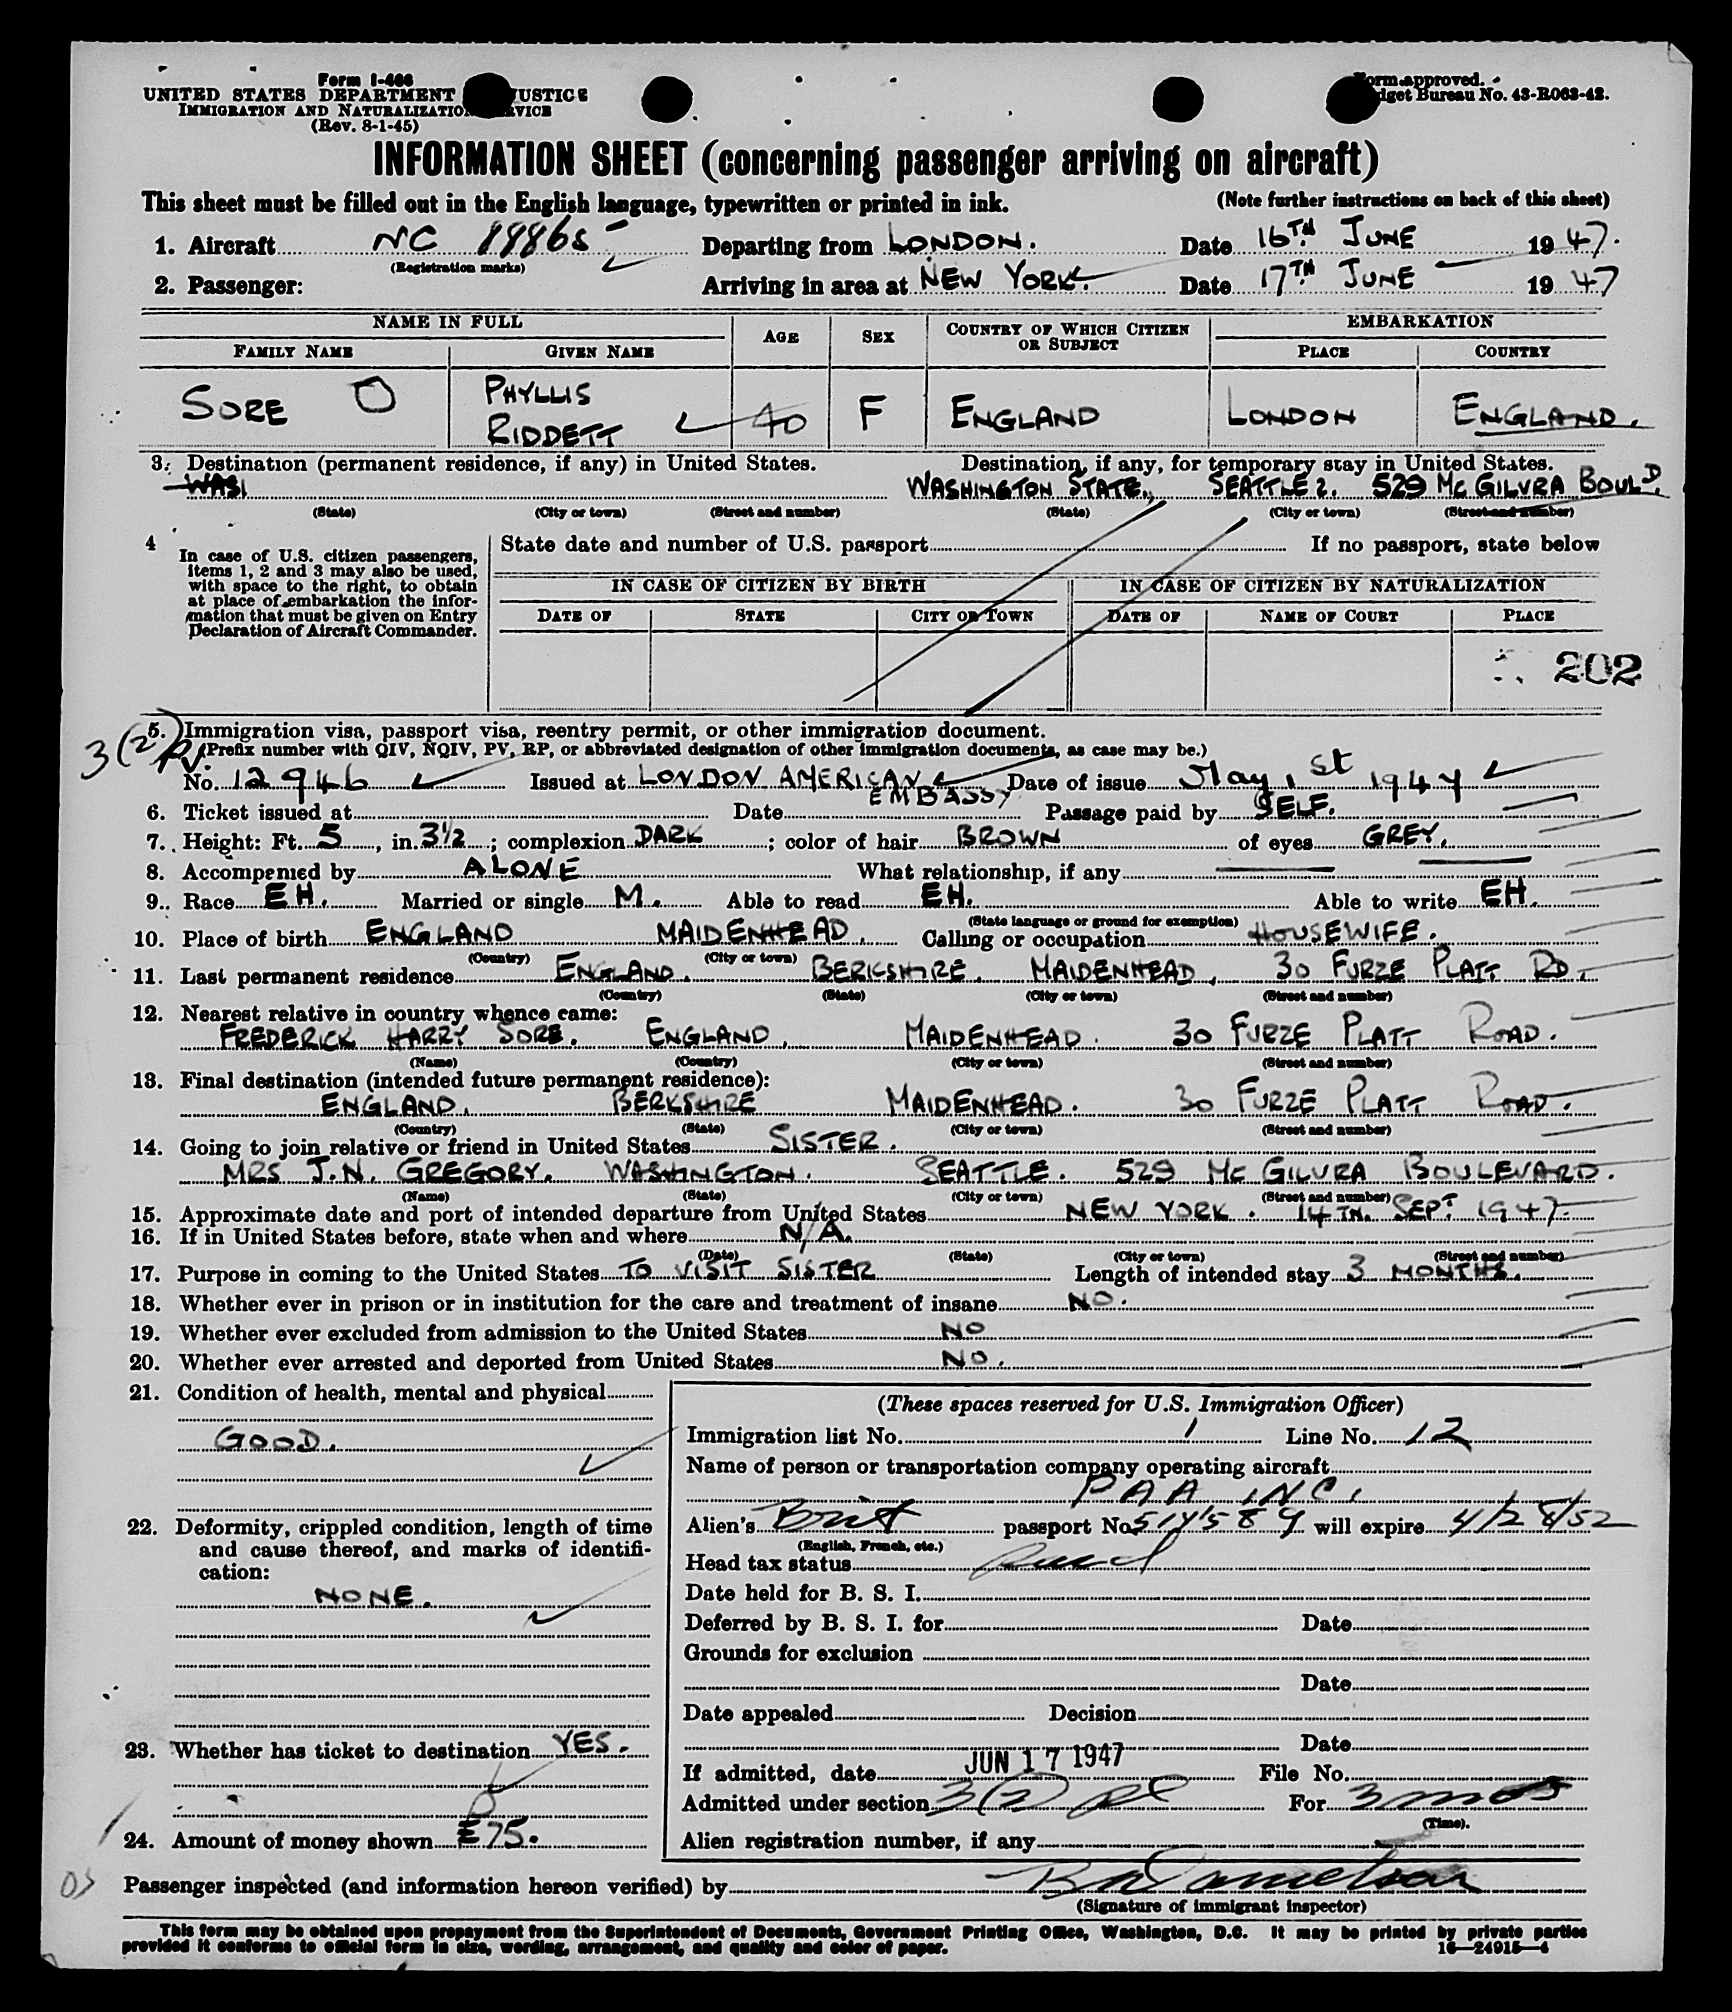 Form I-466
UNITED STATES DEPARTMENT JUSTICE
IMMIGRATION AND NATURALIZATION SERVICE
(Rev. 8-1-45)
Form approved.
Budget Bureau No. 43-R063-42.
INFORMATION SHEET (concerning passenger arriving on aircraft)
This sheet must be filled out in the English language, typewritten or printed in ink. (Note further instructions on back of this sheet)
1. Aircraft NC Departing from LONDON. Date 16TH JUNE 1947.
(Registration marks)
2. Passenger: Arriving in area at NEW YORK. Date 17TH JUNE 1947
NAME IN FULL AGE SEX COUNTRY OF WHICH CITIZEN OR SUBJECT EMBARKATION
FAMILY NAME GIVEN NAME PLACE COUNTRY
SORE O PHYLLIS RIDDETT 40 F ENGLAND LONDON ENGLAND.
3. Destination (permanent residence, if any) in United States. Destination, if any, for temporary stay in United States.
WASI WASHINGTON STATE., SEATTLE 2. 529 MC GILVRA BOULD.
(State) (City or town) (Street and number) (State) (City or town) (Street and number)
4 In case of U.S. citizen passengers, items 1, 2 and 3 may also be used, with space to the right, to obtain at place of embarkation the information that must be given on Entry Declaration of Aircraft Commander.
State date and number of U.S. passport If no passport, state below
IN CASE OF CITIZEN BY BIRTH IN CASE OF CITIZEN BY NATURALIZATION
DATE OF STATE CITY OR TOWN DATE OF NAME OF COURT PLACE
202
3(2) 5. Immigration visa, passport visa, reentry permit, or other immigration document.
PV (Prefix number with QIV, NQIV, PV, RP, or abbreviated designation of other immigration documents, as case may be.)
No. 12946 Issued at LONDON AMERICAN EMBASSY Date of issue May 1st 1947
6. Ticket issued at Date Passage paid by SELF.
7. Height: Ft. 5, in. 3½; complexion DARK; color of hair BROWN of eyes GREY.
8. Accompanied by ALONE What relationship, if any
9. Race EH. Married or single M. Able to read EH. Able to write EH.
(State language or ground for exemption)
10. Place of birth ENGLAND MAIDENHEAD. Calling or occupation HOUSEWIFE.
(Country) (City or town)
11. Last permanent residence ENGLAND. BERKSHIRE. MAIDENHEAD, 30 FURZE PLATT RD.
(Country) (State) (City or town) (Street and number)
12. Nearest relative in country whence came:
FREDERICK HARRY SORE. ENGLAND, MAIDENHEAD. 30 FURZE PLATT ROAD.
(Name) (Country) (City or town) (Street and number)
13. Final destination (intended future permanent residence):
ENGLAND. BERKSHIRE MAIDENHEAD. 30 FURZE PLATT ROAD.
(Country) (State) (City or town) (Street and number)
14. Going to join relative or friend in United States SISTER.
MRS J.N. GREGORY. WASHINGTON. SEATTLE. 529 MC GILVRA BOULEVARD.
(Name) (State) (City or town) (Street and number)
15. Approximate date and port of intended departure from United States NEW YORK. 14TH. SEPT 1947.
16. If in United States before, state when and where N/A.
(Date) (State) (City or town) (Street and number)
17. Purpose in coming to the United States TO VISIT SISTER Length of intended stay 3 MONTHS.
18. Whether ever in prison or in institution for the care and treatment of insane NO.
19. Whether ever excluded from admission to the United States NO
20. Whether ever arrested and deported from United States NO.
21. Condition of health, mental and physical
GOOD.
22. Deformity, crippled condition, length of time
and cause thereof, and marks of identifi-
cation:
NONE.
23. Whether has ticket to destination YES.
24. Amount of money shown £75.
(These spaces reserved for U.S. Immigration Officer)
Immigration list No. 1 Line No. 12
Name of person or transportation company operating aircraft
PAA INC.
Alien's Brit passport No. 514589 will expire 4/28/52
(English, French, etc.)
Head tax status
Date held for B. S. I.
Deferred by B. S. I. for Date
Grounds for exclusion
Date
Date appealed Decision
Date
If admitted, date JUN 17 1947 File No.
Admitted under section 3(2) For 3 mos
(Time).
Alien registration number, if any
Passenger inspected (and information hereon verified) by
(Signature of immigrant inspector)
This form may be obtained upon prepayment from the Superintendent of Documents, Government Printing Office, Washington, D.C. It may be printed by private parties
provided it conforms to official form in size, wording, arrangement, and quality and color of paper. 16—24915-4